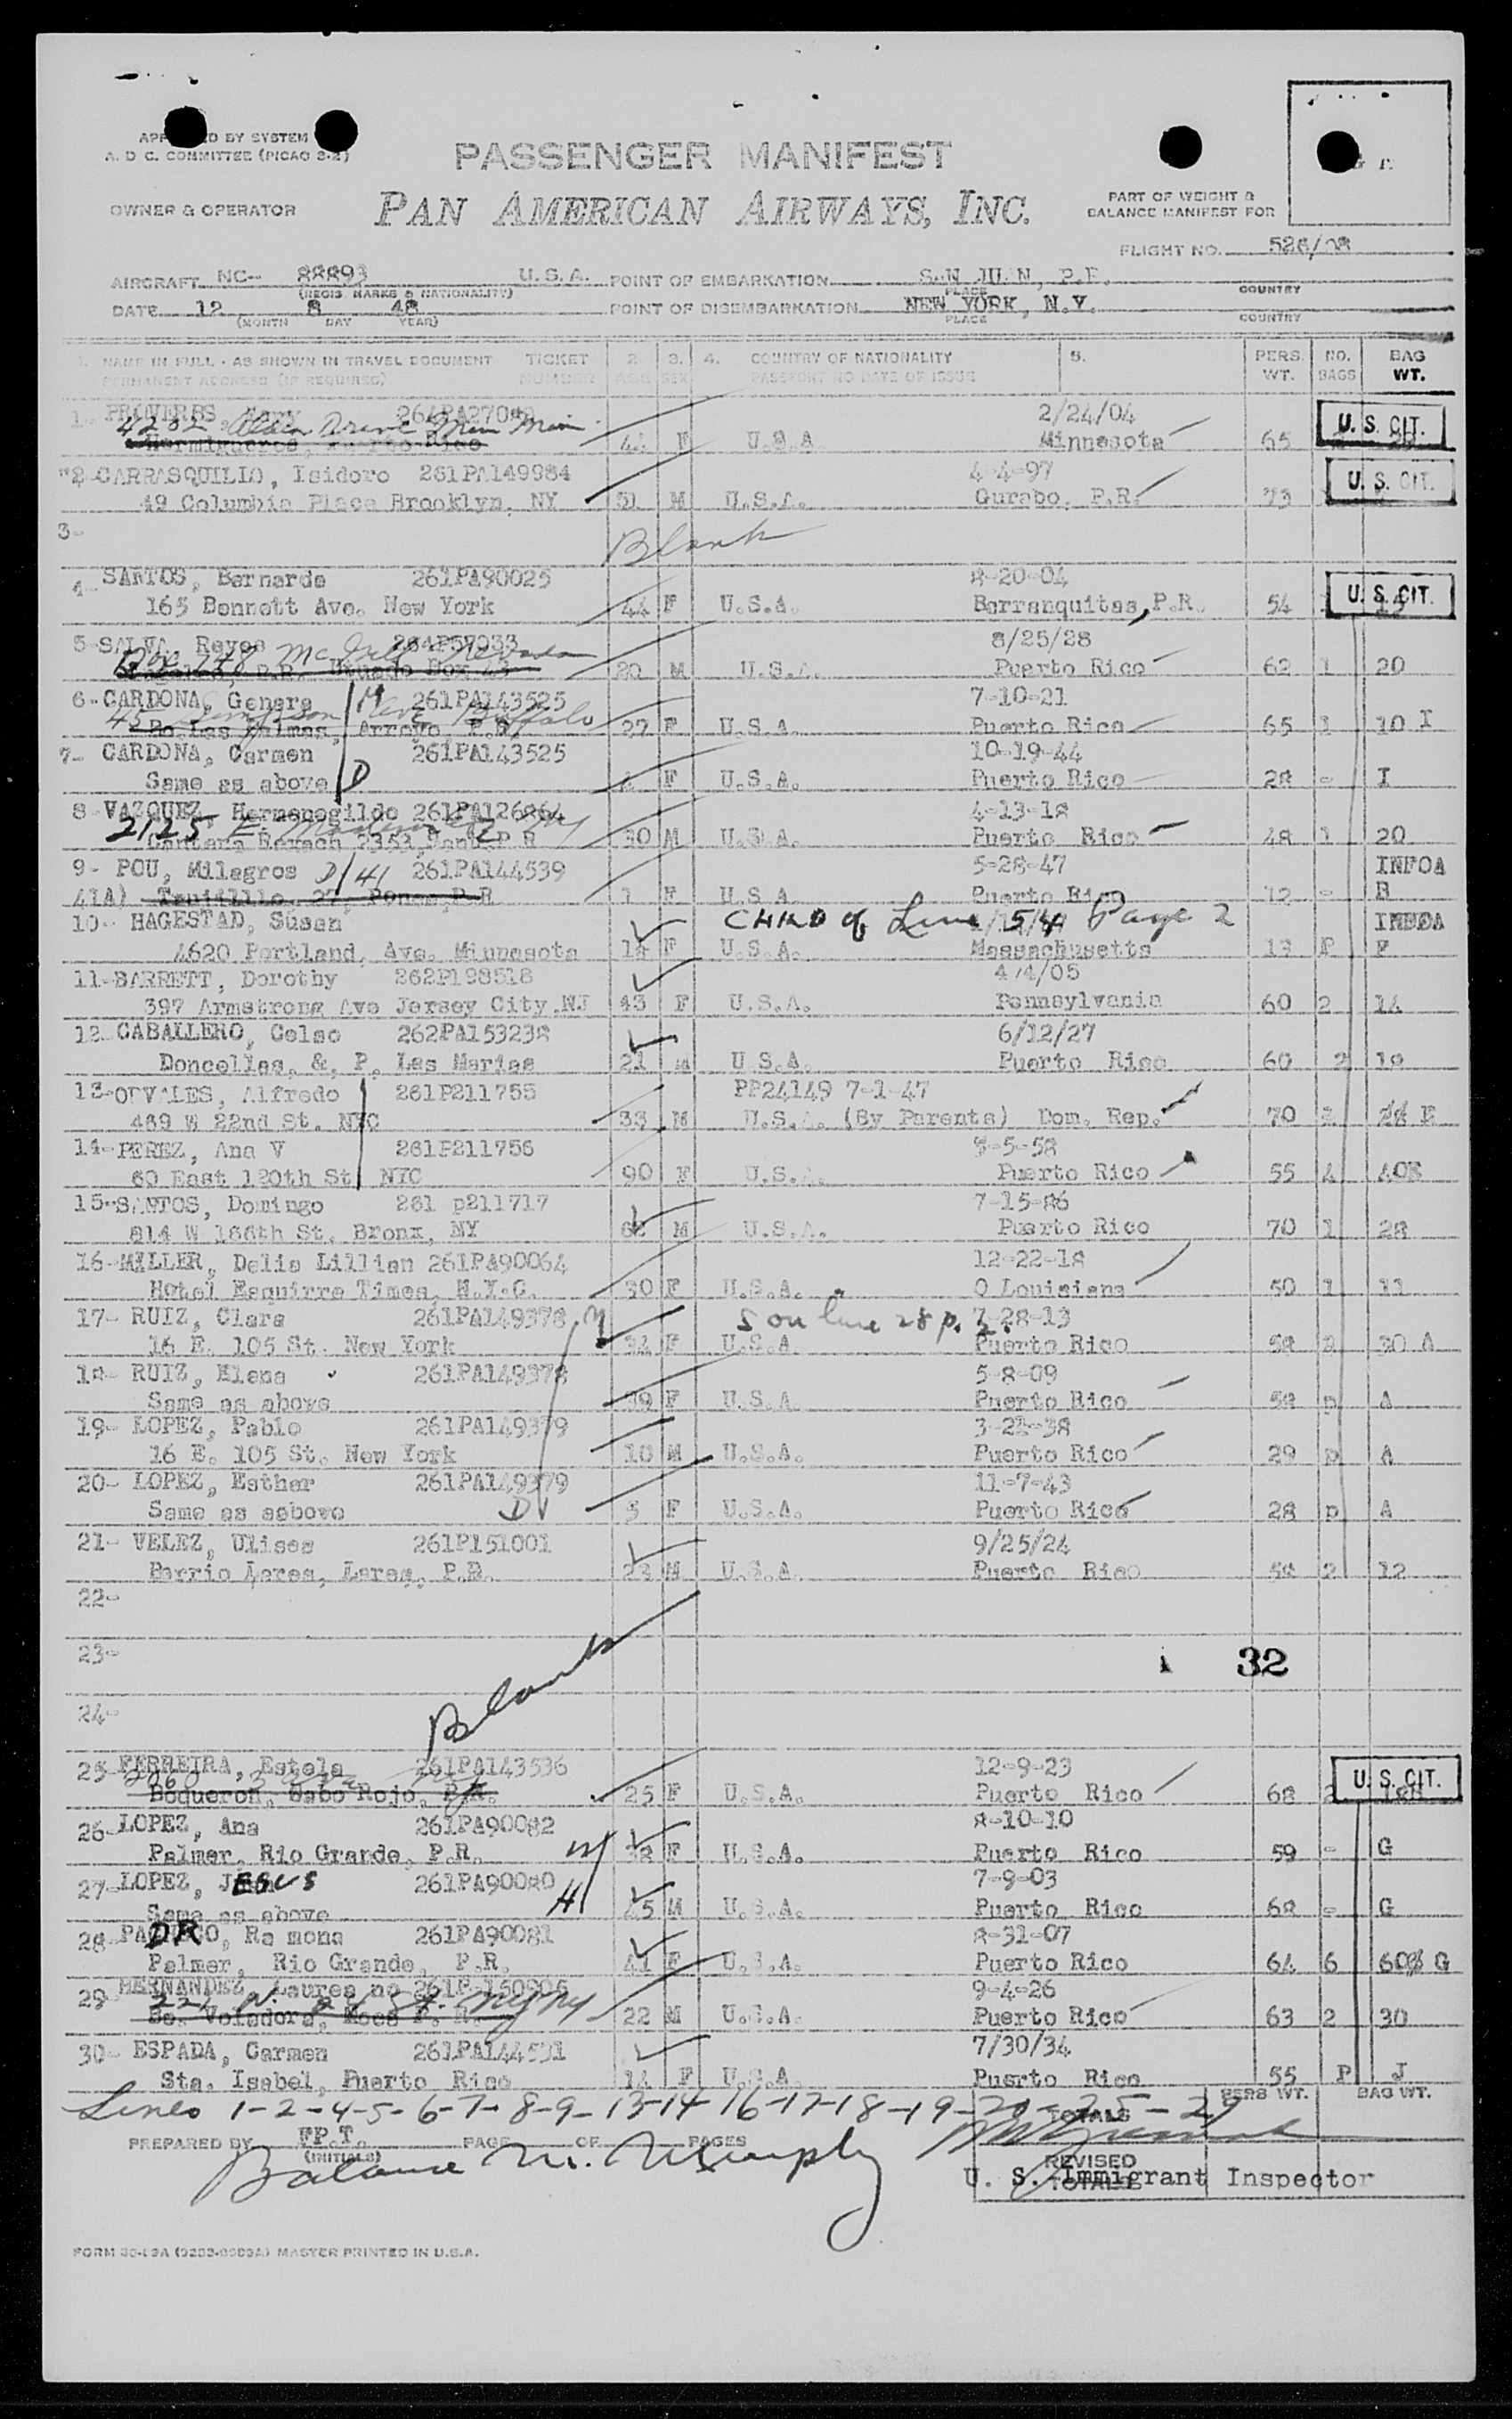 APPROVED BY SYSTEM
A. D C. COMMITTEE (PICAO 3-2)
PASSENGER MANIFEST
OWNER & OPERATOR
PAN AMERICAN AIRWAYS, INC.
PART OF WEIGHT &
BALANCE MANIFEST FOR
FLIGHT NO. 526/08
AIRCRAFT NC- 88893 U.S.A. POINT OF EMBARKATION SAN JUAN, P.R.
(REGIS. MARKS & NATIONALITY) PLACE COUNTRY
DATE 12 8 48 POINT OF DISEMBARKATION NEW YORK, N.Y.
(MONTH DAY YEAR) PLACE COUNTRY
NAME IN FULL - AS SHOWN IN TRAVEL DOCUMENT TICKET 2. 3. 4. COUNTRY OF NATIONALITY 5. PERS. NO. BAG
PERMANENT ADDRESS (IF REQUIRED) NUMBER AGE SEX PASSPORT NO DATE OF ISSUE WT. BAGS WT.
1- PROVERBS, Mary 2/24/04
4202 Drive
Hormigueros, Puerto Rico 44 F U.S.A Minnesota 65 U.S. CIT.
2-CARRASQUILLO, Isidoro 261PA149984 4-4-97
49 Columbia Place Brooklyn, NY 51 M U.S.A. Gurabo, P.R. 73 U.S. CIT.
3- Blank
4- SANTOS, Bernarda 261PA90025 8-20-04
165 Bennett Ave. New York 44 F U.S.A. Barranquitas, P.R. 54 U.S. CIT.
5-SALVA, Reyes 264P57033 8/25/28
Box 148 McGill Nevada
20 M U.S.A. Puerto Rico 62 1 20
6-CARDONA, Genara M 261PA143525 7-10-21
45 Ave Buffalo
Bo. Las Palmas, Arroyo, P.R. 27 F U.S.A. Puerto Rico 65 1 10 I
7- CARDONA, Carmen 261PA143525 10-19-44
Same as above D 4 F U.S.A. Puerto Rico 28 - I
8-VAZQUEZ, Hermenegildo 261PA126864 4-13-18
2125 E.
30 M U.S.A. Puerto Rico 48 1 20
9- POU, Milagros D/41 261PA144539 5-28-47 INFOA
41A) 27, Ponce, P.R 1 F U.S.A Puerto Rico 12 - B
10- HAGESTAD, Susan CHILD of Line 54 Page 2
4620 Portland, Ave. Minnesota 14 F U.S.A. Massachusetts 13 P F
11-BARRETT, Dorothy 262P198518 4/4/05
397 Armstrong Ave Jersey City.NJ 43 F U.S.A. Pennsylvania 60 2 14
12-CABALLERO, Celso 262PA153238 6/12/27
Doncellas, &, P, Las Marias 21 M U.S.A. Puerto Rico 60 2 19
13-OTVALES, Alfredo 261P211755 PP24149 7-1-47
469 W 22nd St. NYC 33 M U.S.A. (By Parents) Dom. Rep. 70 E
14-PEREZ, Ana V 261P211756 8-5-58
60 East 120th St NYC 90 F U.S.A. Puerto Rico 55 4 40E
15-SANTOS, Domingo 261 p211717 7-15-86
814 W 166th St. Bronx, NY 62 M U.S.A. Puerto Rico 70 1 28
16-MILLER, Delia Lillian 261PA90064 12-22-18
Hotel Esquirre Times, N.Y.C. 30 F U.S.A. O Louisiana 50 1 11
17- RUIZ, Clara 261PA149378 M Son line 28 p. 2. 7-28-13
16 E. 105 St. New York 34 F U.S.A. Puerto Rico 58 30 A
18- RUIZ, Elena 261PA149378 5-8-09
Same as above 39 F U.S.A Puerto Rico 58 p A
19- LOPEZ, Pablo 261PA149379 3-21-38
16 E. 105 St. New York 10 M U.S.A. Puerto Rico 29 p A
20- LOPEZ, Esther 261PA149379 11-7-43
Same as asbove D 5 F U.S.A. Puerto Rico 28 p A
21- VELEZ, Ulises 261P151001 9/25/24
Barrio Lares, Lares, P.R. 24 M U.S.A. Puerto Rico 58 2 12
22-
23- 32
24-
Blank
25-FERREIRA, Estela 261PA143536 12-9-23
Boqueron, Cabo Rojo, P.R. 25 F U.S.A. Puerto Rico 68 2 U.S. CIT.
26-LOPEZ, Ana 261PA90082 8-10-10
Palmer, Rio Grande, P.R. W 38 F U.S.A. Puerto Rico 59 - G
27-LOPEZ, JESUS 261PA90080 7-9-03
Same as above H 45 M U.S.A. Puerto Rico 68 - G
28- PADRO, Ramona 261PA90081 8-31-07
Palmer, Rio Grande, P.R. 41 F U.S.A. Puerto Rico 64 6 60 G
29-HERNANDEZ, Laurea no 9-4-26
Bo. Voladora, Moca P.R. 22 M U.S.A. Puerto Rico 63 2 30
30- ESPADA, Carmen 261PA144531 7/30/34
Sta. Isabel, Puerto Rico 14 F U.S.A. Puerto Rico 55 P J
Lines 1-2-4-5-6-7-8-9-13-14-16-17-18-19-20-25-29
TOTALS PERS WT. BAG WT.
PREPARED BY FP.T. PAGE OF PAGES
(INITIALS)
Balance M. Murphy
REVISED
TOTALS
U. S. Immigrant Inspector
FORM 30-89A (9203-0089A) MASTER PRINTED IN U.S.A.